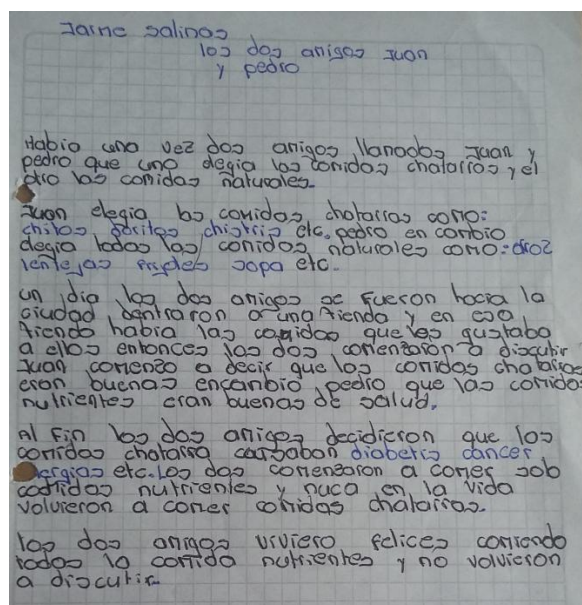 Jaime salinas
los dos amigos Juan
y pedro
Habia una vez dos amigos llamados Juan y
pedro que uno elegia las comidas chatarras y el
otro las comidas naturales.
Juan elegia las comidas chatarras como:
chitos, doritos, etc. pedro en cambio
elegia todas las comidas naturales como: aroz
lentejas sopa etc.
un dia los dos amigos se fueron hacia la
ciudad, dentraron a una tienda y en esa
tienda habia las comidas que les gustaba
a ellos entonces los dos comenzaron a discutir
Juan comenzo a decir que las comidas chatarras
eran buenas encambio pedro que las comidas
nutrientes eran buenas de salud.
Al Fin los dos amigos decidieron que las
comidas chatarra causaban diabetis cancer
alergias etc. Los dos comenzaron a comer solo
comidas nutrientes y nuca en la vida
volvieron a comer comidas chatarras.
los dos amigos viviero felices comiendo
todos la comida nutrientes y no volvieron
a discutir.